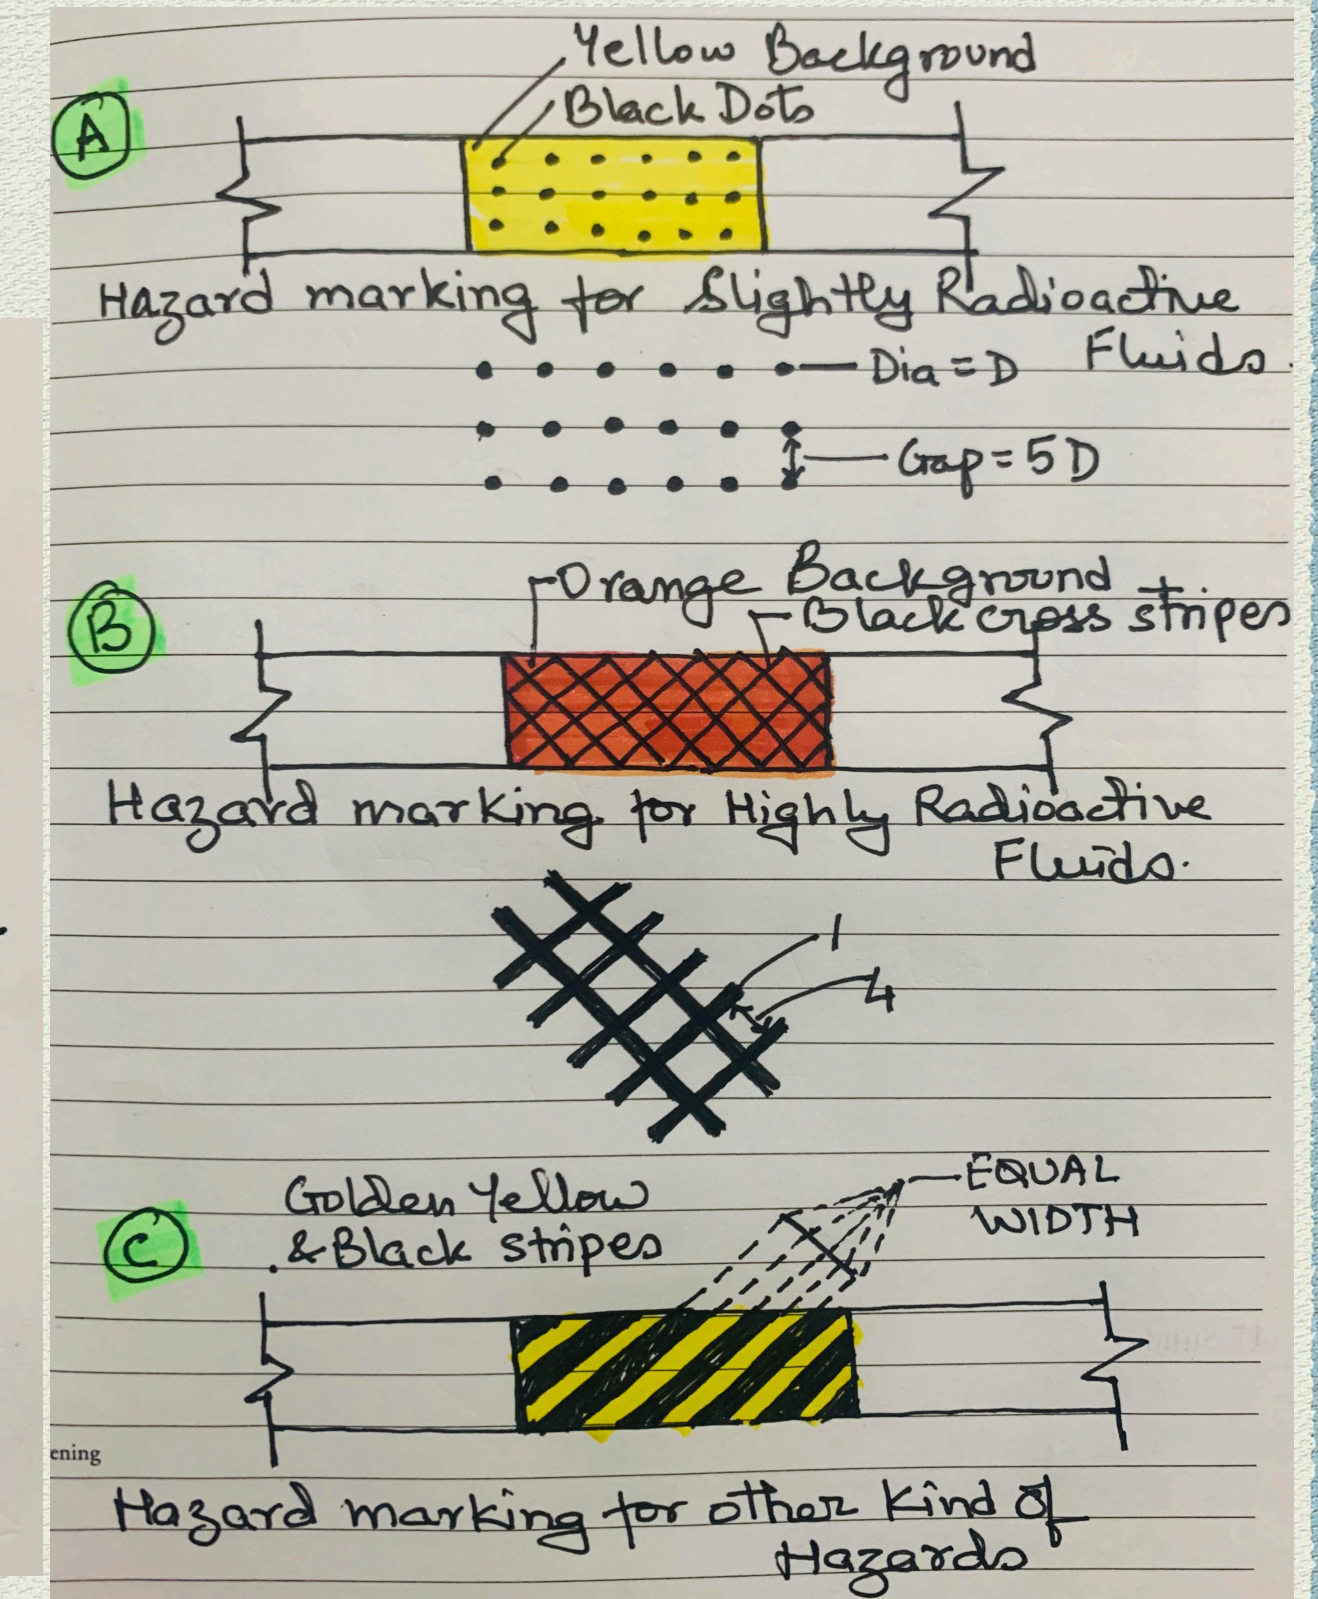 Yellow Background
Black Dots
A
Hazard marking for Slightly Radioactive
Fluids.
Dia = D
Gap = 5D
Orange Background +
Black cross stripes
B
Hazard marking for Highly Radioactive
Fluids.
1
4
Golden Yellow
& Black stripes
EQUAL
WIDTH
C
ening
Hazard marking for other Kind of
Hazards